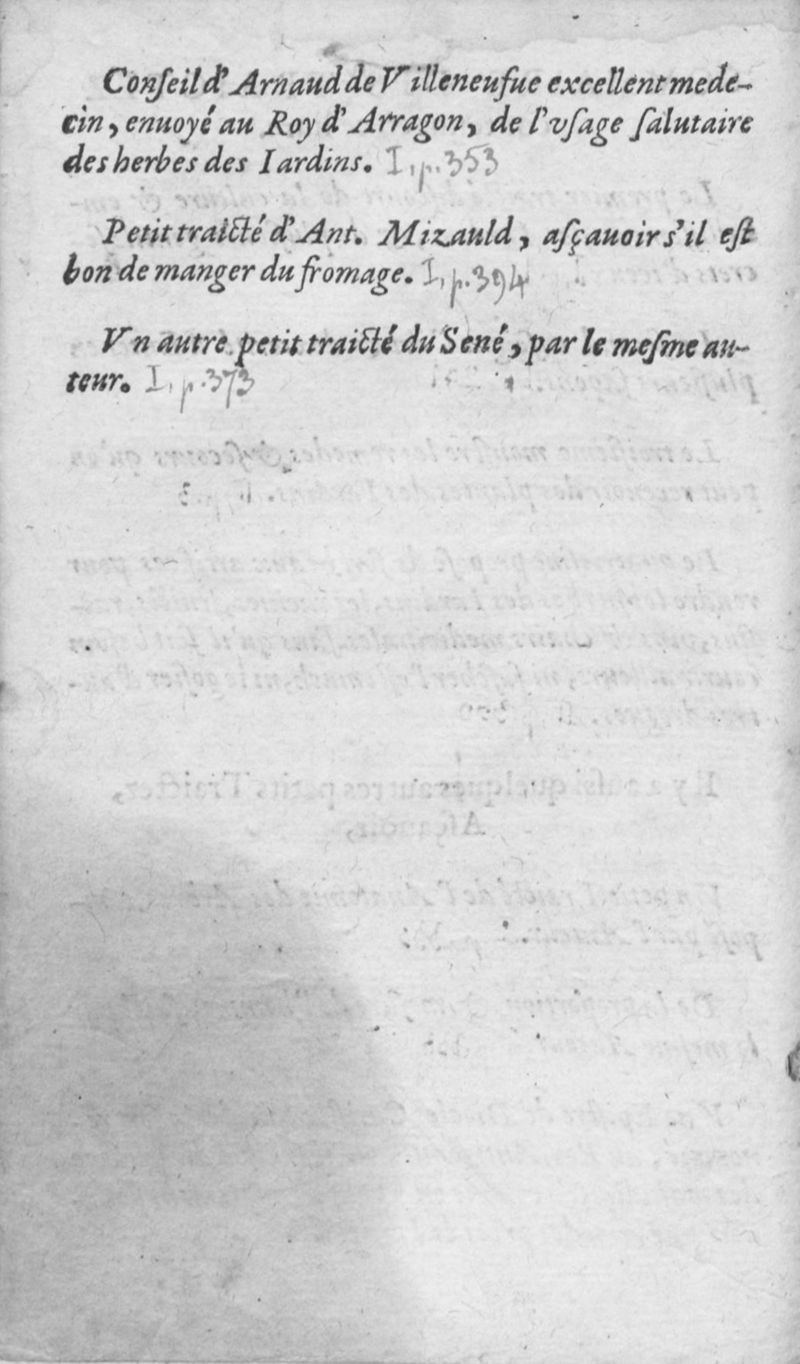 Conſeil d'Arnaud de Villeneufue excellent mede-
cin, enuoyé au Roy d'Arragon, de l'vſage ſalutaire
des herbes des Iardins. I, p. 353
Petit traicté d'Ant. Mizauld, aſçauoir s'il eſt
bon de manger du fromage. I, p. 394
Vn autre petit traicté du Sené, par le meſme au-
teur. I, p. 373